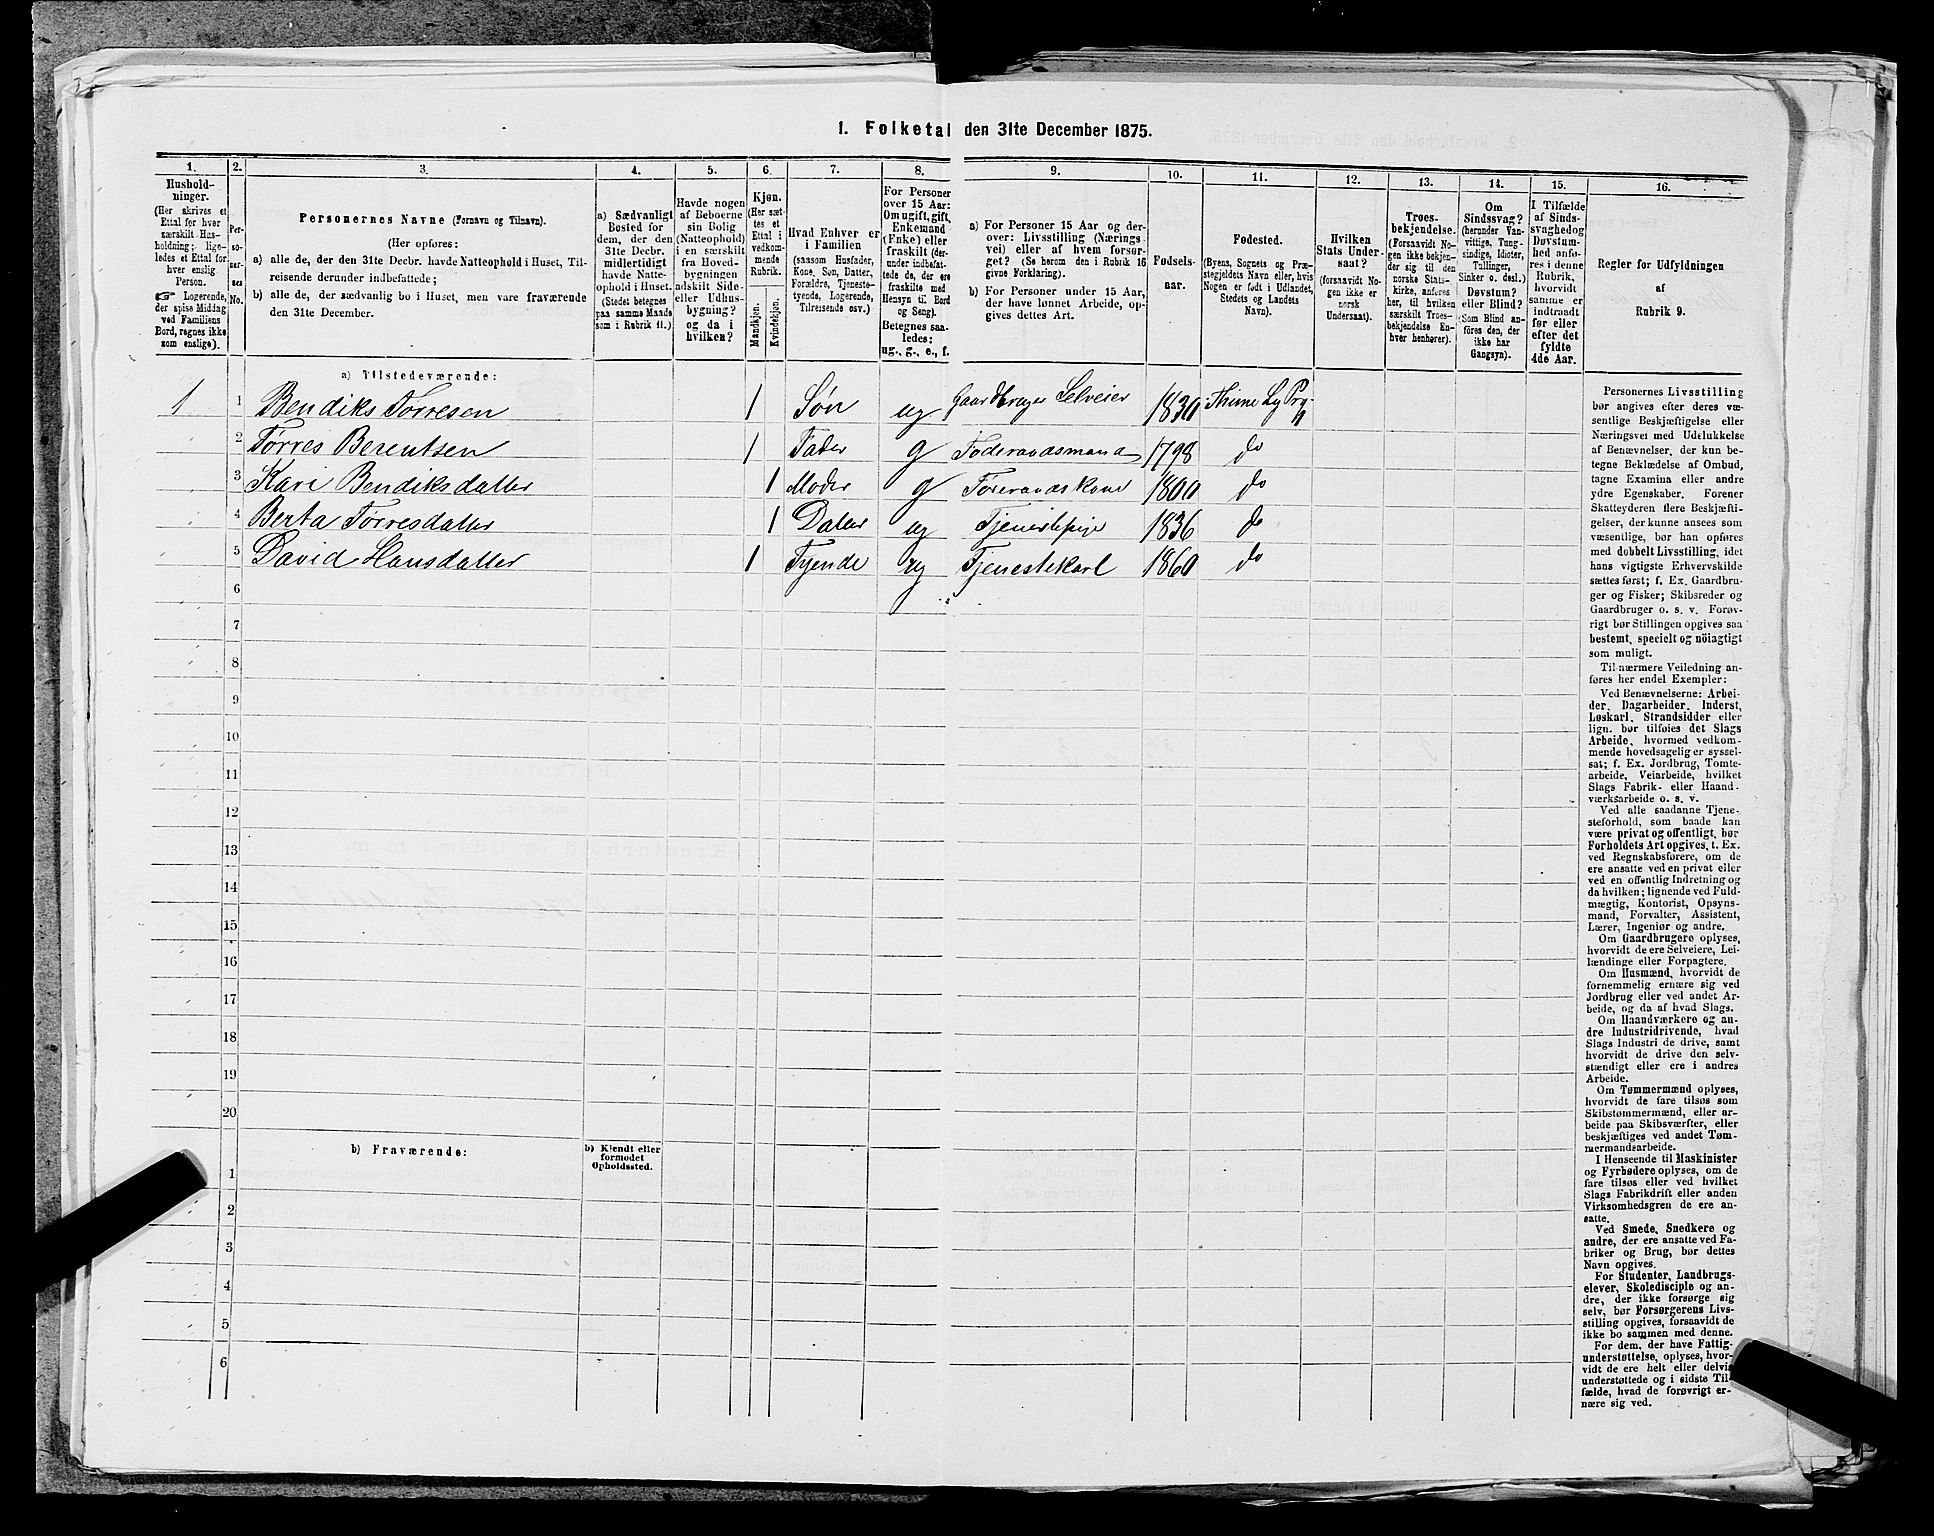 1. Folketal den 31te December 1875.
1. 2. 3. 4. 5. 6. 7. 8. 9. 10. 11. 12. 13. 14. 15. 16.
Hushold-
ninger.
(Her skrives et
Ettal for hver
særskilt Hus-
holdning; lige-
ledes et Ettal for
hver enslig
Person.
☞ Logerende,
der spise Middag
ved Familiens
Bord, regnes ikke
som enslige).
Per-
so-
ner-
nes
No.
Personernes Navne (Fornavn og Tilnavn).
(Her opføres:
a) alle de, der den 31te Decbr. havde Natteophold i Huset, Til-
reisende derunder indbefattede;
b) alle de, der sædvanlig bo i Huset, men vare fraværende
den 31te December.
a) Sædvanligt
Bosted for
dem, der den
31te Decbr.
midlertidigt
havde Natte-
ophold i Huset.
(Stedet betegnes
paa samme Maade
som i Rubrik 11.)
Havde nogen
af Beboerne
sin Bolig
(Natteophold)
i en særskilt
fra Hoved-
bygningen
adskilt Side-
eller Udhus-
bygning?
og da i
hvilken?
Kjøn.
(Her sæt-
tes et
Ettal i
vedkom-
mende
Rubrik.
Mandkjøn.
Kvindekjøn.
Hvad Enhver er
i Familien
(saasom Husfader,
Kone, Søn, Datter,
Forældre, Tjeneste-
tyende, Logerende,
Tilreisende osv.)
For Personer
over 15 Aar:
Om ugift, gift,
Enkemand
(Enke) eller
fraskilt (der-
under indbefat-
tede de, der ere
fraskilte med
Hensyn til Bord
og Seng).
Betegnes saa-
ledes:
ug., g., e., f.
a) For Personer 15 Aar og der-
over: Livsstilling (Nærings-
vei) eller af hvem forsør-
get? (Se herom den i Rubrik 16
givne Forklaring).
b) For Personer under 15 Aar,
der have lønnet Arbeide, op-
gives dettes Art.
Fødsels-
aar.
Fødested.
(Byens, Sognets og Præ-
stegjeldets Navn eller, hvis
Nogen er født i Udlandet,
Stedets og Landets
Navn).
Hvilken
Stats Under-
saat?
(forsaavidt No-
gen ikke er
norsk
Undersaat).
Troes-
bekjendelse.
(Forsaavidt No-
gen ikke bekjen-
der sig til den
norske Stats-
kirke, anføres
her, til hvilken
særskilt Troes-
bekjendelse En-
hver henhører).
Om
Sindssvag?
(herunder Van-
vittige, Tung-
sindige, Idioter,
Tullinger,
Sinker o. desl.)
Døvstum?
eller Blind?
(Som Blind an-
føres den, der
ikke har
Gangsyn).
I Tilfælde
af Sinds-
svaghed og
Døvstum-
hed anfø-
res i denne
Rubrik,
hvorvidt
samme er
indtraadt
før eller
efter det
fyldte
4de Aar.
Regler for Udfyldningen
af
Rubrik 9.
a) Tilstedeværende:
1 1 Bendiks Torresen 1 Søn ug Gaardbruger Selveier 1830 Thime Ly Prg
2 Torres Berentsen 1 Fader g Føderaadsmand 1798 do
3 Kari Bendiksdatter 1 Moder g Føreraadskone 1800 do
4 Berta Torresdatter 1 Datter ug Tjenestepige 1836 do
5 David Hansdatter 1 Tyende ug Tjenestekarl 1860 do
6
7
8
9
10
11
12
13
14
15
16
17
18
19
20
b) Fraværende:
b) Kjendt eller
formodet
Opholdssted.
1
2
3
4
5
6
Personernes Livsstilling
bør angives efter deres væ-
sentlige Beskjæftigelse eller
Næringsvei med Udelukkelse
af Benævnelser, der kun be-
tegne Beklædelse af Ombud,
tagne Examina eller andre
ydre Egenskaber. Forener
Skatteyderen flere Beskjæfti-
gelser, der kunne ansees som
væsentlige, bør han opføres
med dobbelt Livsstilling, idet
hans vigtigste Erhvervskilde
sættes først; f. Ex. Gaardbru-
ger og Fisker; Skibsreder og
Gaardbruger o. s. v. Forøv-
rigt bør Stillingen opgives saa
bestemt, specielt og nöiagtigt
som muligt.
Til nærmere Veiledning an-
føres her endel Exempler:
Ved Benævnelserne: Arbei-
der, Dagarbeider, Inderst,
Løskarl, Strandsidder eller
lign. bør tilføies det Slags
Arbeide, hvormed vedkom-
mende hovedsagelig er syssel-
sat; f. Ex. Jordbrug, Tomte-
arbeide, Veiarbeide, hvilket
Slags Fabrik- eller Haand-
værksarbeide o. s. v.
Ved alle saadanne Tjene-
steforhold, som baade kan
være privat og offentligt, bør
Forholdets Art opgives, t. Ex.
ved Regnskabsførere, om de
ere ansatte ved en privat eller
ved en offentlig Indretning og
da hvilken; lignende ved Fuld-
mægtig, Kontorist, Opsyns-
mand, Forvalter, Assistent,
Lærer, Ingeniør og andre.
Om Gaardbrugere oplyses,
hvorvidt de ere Selveiere, Lei-
lændinge eller Forpagtere.
Om Husmænd, hvorvidt de
fornemmelig ernære sig ved
Jordbrug eller ved andet Ar-
beide, og da af hvad Slags.
Om Haandværkere og an-
dre Industridrivende, hvad
Slags Industri de drive, samt
hvorvidt de drive den selv-
stændigt eller ere i andres
Arbeide.
Om Tømmermænd oplyses,
hvorvidt de fare tilsøs som
Skibstømmermænd, eller ar-
beide paa Skibsværfter, eller
beskjæftiges ved andet Tøm-
mermandsarbeide.
I Henseende til Maskinister
og Fyrbødere oplyses, om de
fare tilsøs eller ved hvilket
Slags Fabrikdrift eller anden
Virksomhedsgren de ere an-
satte.
Ved Smede, Snedkere og
andre, der ere ansatte ved Fa-
briker og Brug, bør dettes
Navn opgives.
For Studenter, Landbrugs-
elever, Skoledisciple og an-
dre, der ikke forsørge sig
selv, bør Forsørgerens Livs-
stilling opgives, forsaavidt de
ikke bo sammen med denne.
For dem, der have Fattig-
understøttelse, oplyses, hvor-
vidt de ere helt eller delvis
understøttede og i sidste Til-
fælde, hvad de forøvrigt er-
nære sig ved.